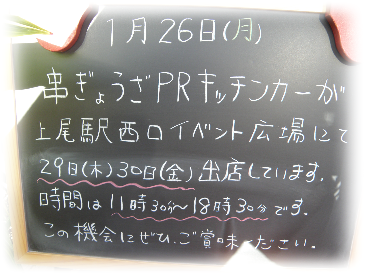 1月26日(月)
串ぎょうざPRキッチンカーが
上尾駅西口イベント広場にて
29日(木)30日(金)出店しています。
時間は11時30分〜18時30分です。
この機会にぜひ、ご賞味ください。